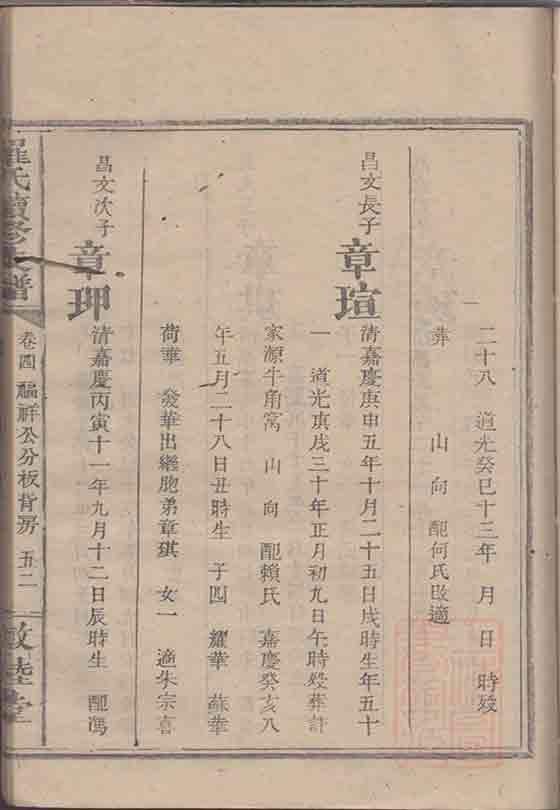 二十八　道光癸巳十三年　月　日　時歿
葬　　山　向　配何氏改適
昌文長子
章瑄
清嘉慶庚申五年十月二十五日戌時生年五十
一　道光庚戌三十年正月初九日午時歿葬計
家源牛角窩　山　向　配賴氏　嘉慶癸亥八
年五月二十八日丑時生　子四　耀華　蘇華
荷華　發華出繼胞弟章琪　女一　適朱宗喜
昌文次子
章玾
清嘉慶丙寅十一年九月十二日辰時生　配馮
羅氏續修　譜
卷四　福祥公分板背房　五二
敦睦堂